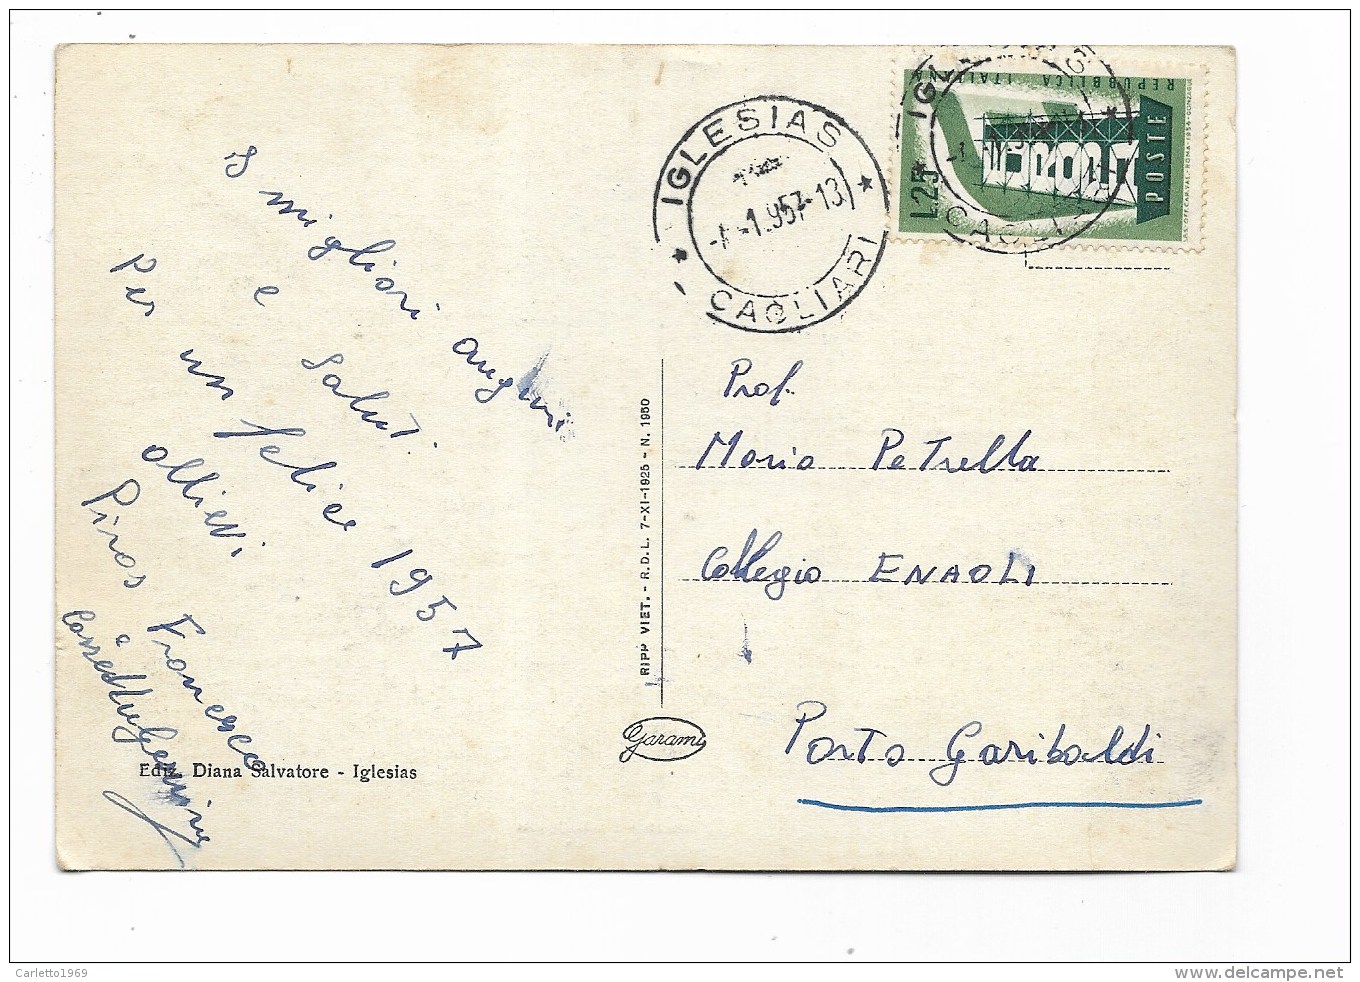 I migliori auguri
e Saluti.
Per un felice 1957
allievi
Piras Francesco
e
IGLESIAS
CAGLIARI
-1.-1.957-13
REPUBBLICA ITALIANA
L.25
EUROPA
POSTE
IGLESIAS
CAGLIARI
RIPR VIET. - R.D.L. 7-XI-1925 - N. 1950
Prof.
Maria Petrella
Collegio ENAOLI
Porto Garibaldi
Garami
Ediz. Diana Salvatore - Iglesias
Carletto1969
delcampe.net